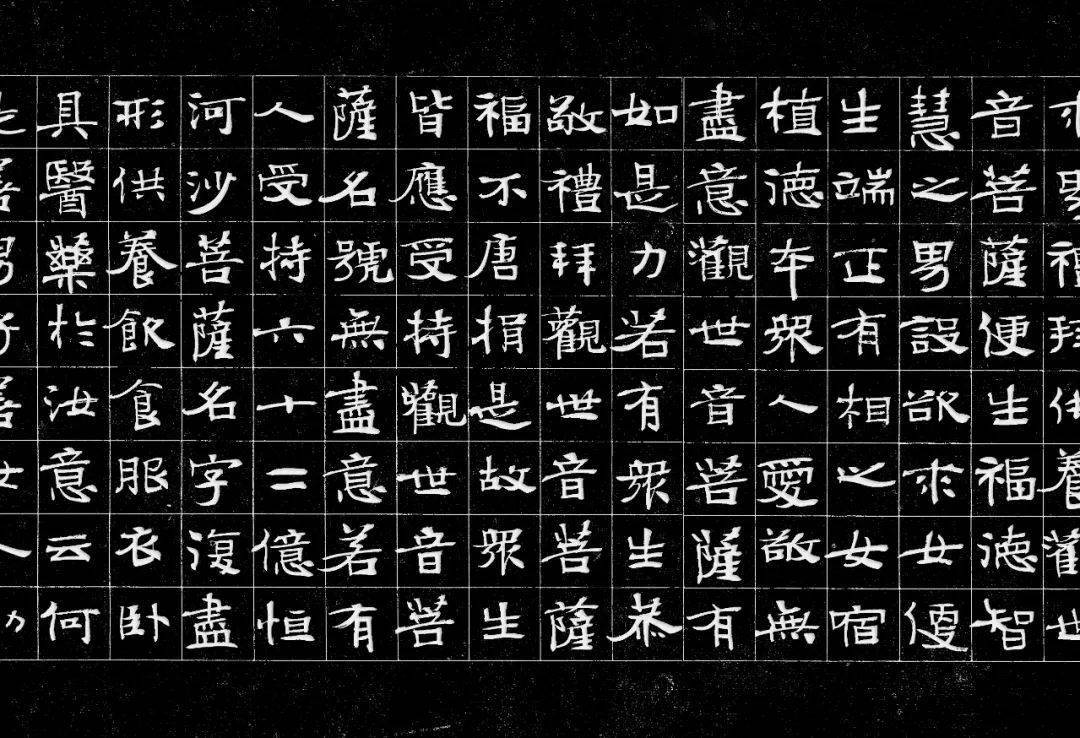 求男禮拜供養觀世
音菩薩便生福德智
慧之男設欲求女便
生端正有相之女宿
植德本眾人愛敬無
盡意觀世音菩薩有
如是力若有眾生恭
敬禮拜觀世音菩薩
福不唐捐是故眾生
皆應受持觀世音菩
薩名號無盡意若有
人受持六十二億恒
河沙菩薩名字復盡
形供養飲食服衣卧
具醫藥於汝意云何
是善男子善女人功